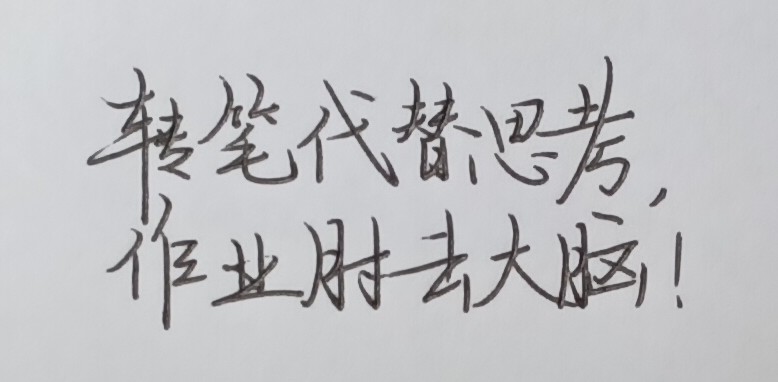 转笔代替思考，
作业肘去大脑！